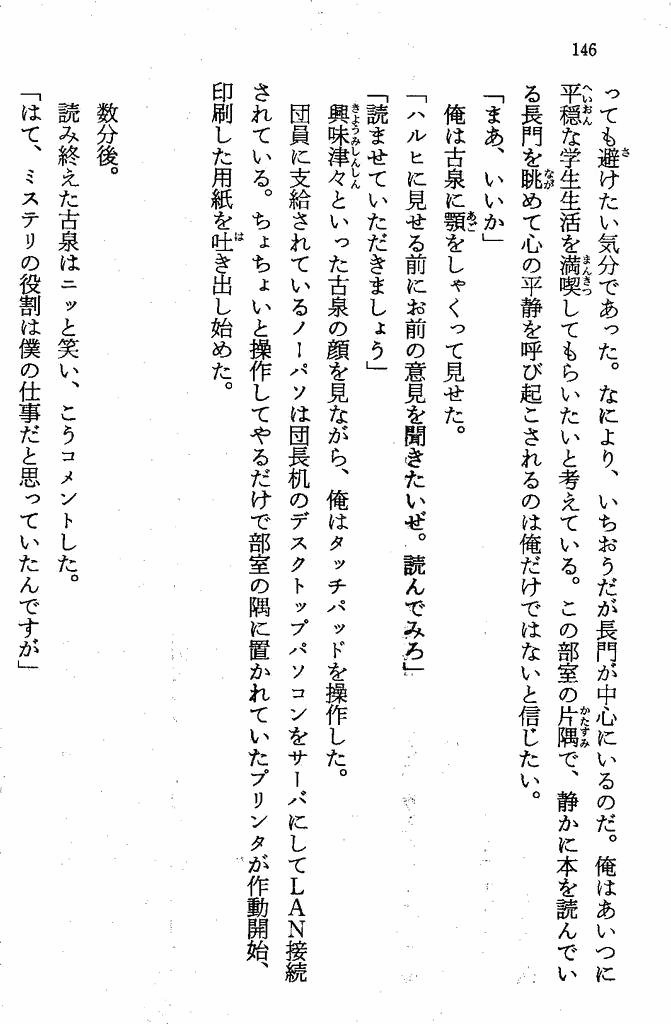 146
っても避けたい気分であった。なにより、いちおうだが長門が中心にいるのだ。俺はあいつに
平穏な学生生活を満喫してもらいたいと考えている。この部室の片隅で、静かに本を読んでい
る長門を眺めて心の平静を呼び起こされるのは俺だけではないと信じたい。
「まあ、いいか」
俺は古泉に顎をしゃくって見せた。
「ハルヒに見せる前にお前の意見を聞きたいぜ。読んでみろ」
「読ませていただきましょう」
興味津々といった古泉の顔を見ながら、俺はタッチパッドを操作した。
団員に支給されているノーパソは団長机のデスクトップパソコンをサーバにしてLAN接続
されている。ちょちょいと操作してやるだけで部室の隅に置かれていたプリンタが作動開始、
印刷した用紙を吐き出し始めた。
数分後。
読み終えた古泉はニッと笑い、こうコメントした。
「はて、ミステリの役割は僕の仕事だと思っていたんですが」